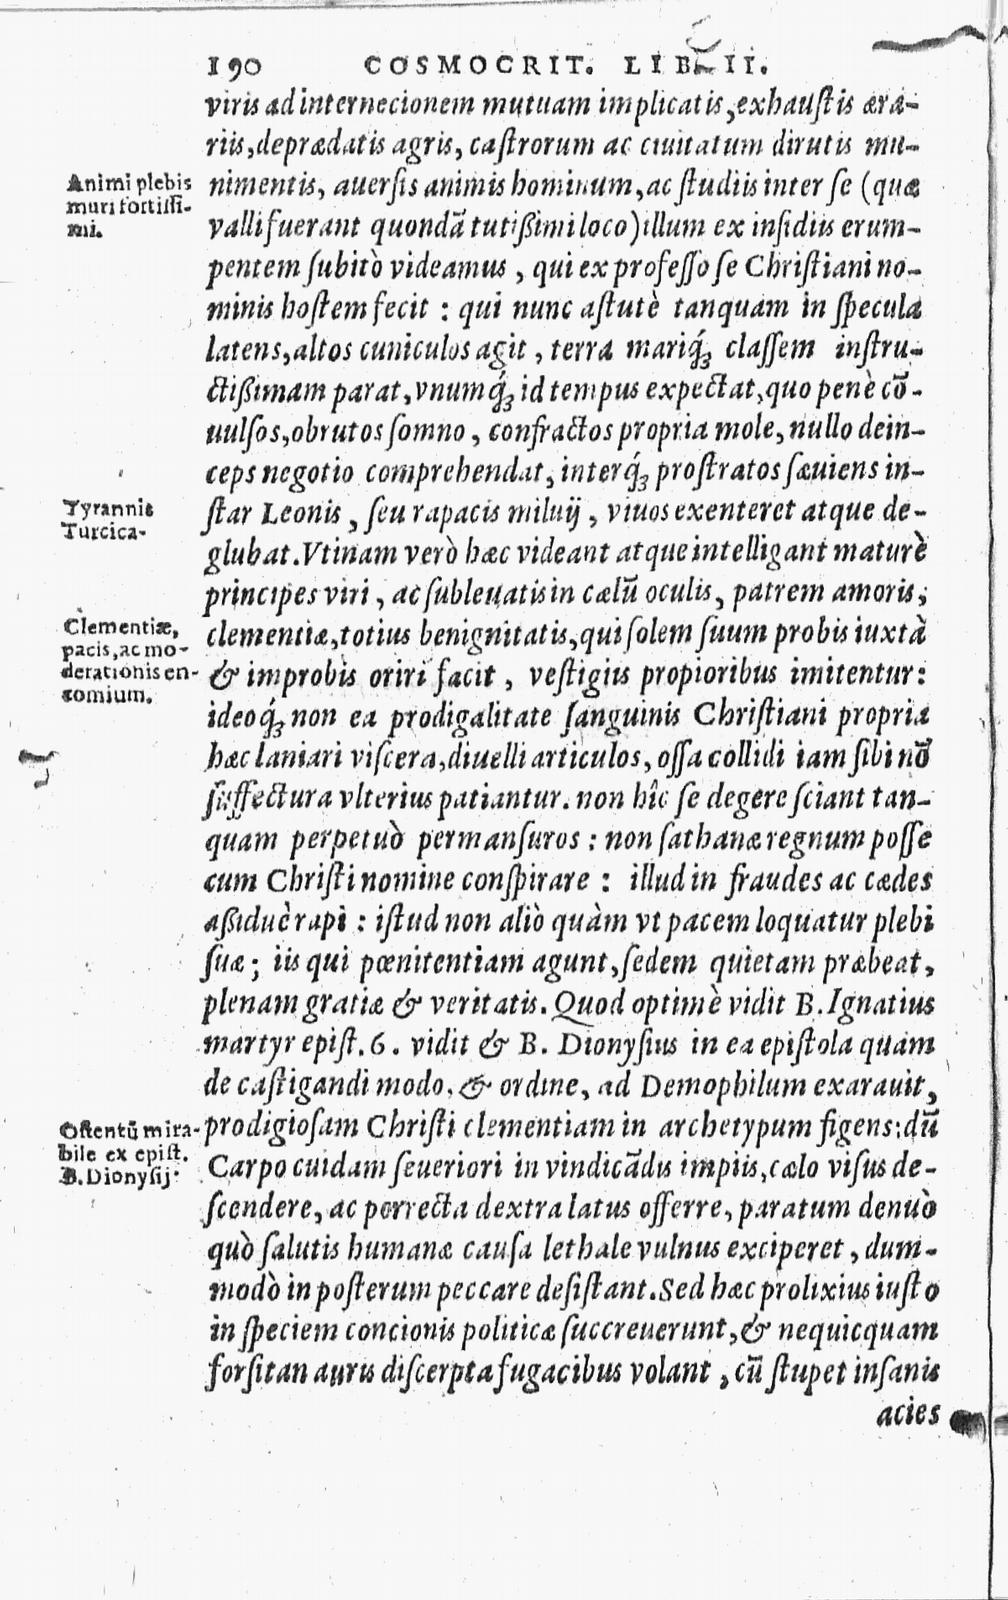 190 COSMOCRIT. LIB. II.
viris ad internecionem mutuam implicatis, exhaustis æra-
riis, deprædatis agris, castrorum ac ciuitatum dirutis mu-
Animi plebis
muri fortissi-
mi.
nimentis, auersis animis hominum, ac studiis inter se (quæ
valli fuerant quondā tutißimi loco) illum ex insidiis erum-
pentem subitò videamus, qui ex professo se Christiani no-
minis hostem fecit : qui nunc astutè tanquam in specula
latens, altos cuniculos agit, terra mariq́; classem instru-
ctißimam parat, vnumq́; id tempus expectat, quo penè cō-
uulsos, obrutos somno, confractos propria mole, nullo dein-
ceps negotio comprehendat, interq́; prostratos sæuiens in-
Tyrannis
Turcica.
star Leonis, seu rapacis miluij, viuos exenteret atque de-
glubat. Vtinam verò hæc videant atque intelligant maturè
principes viri, ac subleuatis in cælū oculis, patrem amoris,
Clementiæ,
pacis, ac mo-
derationis en-
comium.
clementiæ, totius benignitatis, qui solem suum probis iuxtà
& improbis oriri facit, vestigiis propioribus imitentur:
ideoq́; non ea prodigalitate sanguinis Christiani propria
hæc laniari viscera, diuelli articulos, ossa collidi iam sibi nō
suffectura vlterius patiantur. non hîc se degere sciant tan-
quam perpetuò permansuros : non sathanæ regnum posse
cum Christi nomine conspirare : illud in fraudes ac cædes
aßiduè rapi : istud non aliò quàm vt pacem loquatur plebi
suæ; iis qui pœnitentiam agunt, sedem quietam præbeat,
plenam gratiæ & veritatis. Quod optimè vidit B. Ignatius
martyr epist. 6. vidit & B. Dionysius in ea epistola quam
de castigandi modo, & ordine, ad Demophilum exarauit,
Ostentū mira-
bile ex epist.
B. Dionysij.
prodigiosam Christi clementiam in archetypum figens: dū
Carpo cuidam seueriori in vindicādis impiis, cælo visus de-
scendere, ac porrecta dextra latus offerre, paratum denuò
quò salutis humanæ causa lethale vulnus exciperet, dum-
modò in posterum peccare desistant. Sed hæc prolixius iusto
in speciem concionis politicæ succreuerunt, & nequicquam
forsitan auris discerpta fugacibus volant, cū stupet insanis
acies